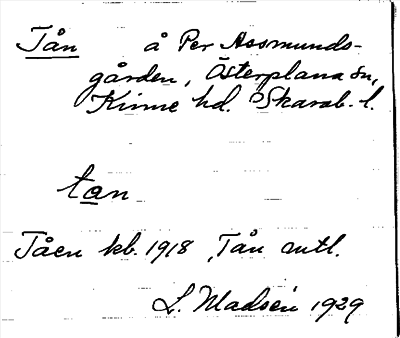 Tån å Per Assmunds-
gården, Österplana sn,
Kinne hd. Skarab. l.
tan
Tåen kb. 1918, Tån muntl.
L. Madsén 1929